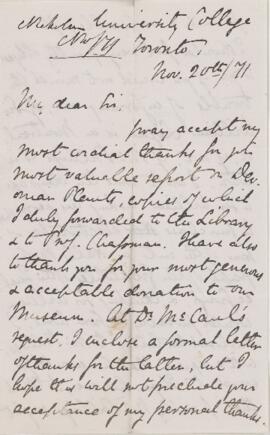 Nicholson University College
Nov/71 Toronto,
Nov. 20th/71
My dear Sir,
pray accept my
most cordial thanks for your
most valuable report on Dev-
onian Plants, copies of which
I duly forwarded to the Library
& to Prof. Chapman. I have also
to thank you for your most generous
& acceptable donation to our
Museum. At Dr McCaul's
request, I enclose a formal letter
of thanks for the latter, but I
hope this will not preclude your
acceptance of my personal thanks.